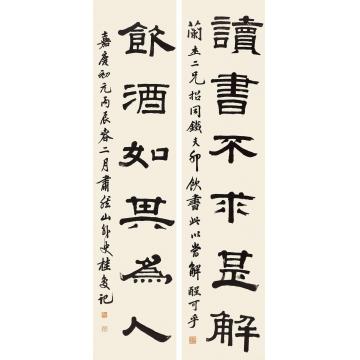 讀書不求甚解
蘭圭二兄招同鐵夫卯飲書此以當解酲可乎
飲酒如其為人
嘉慶初元丙辰春二月肅然山外史桂馥記